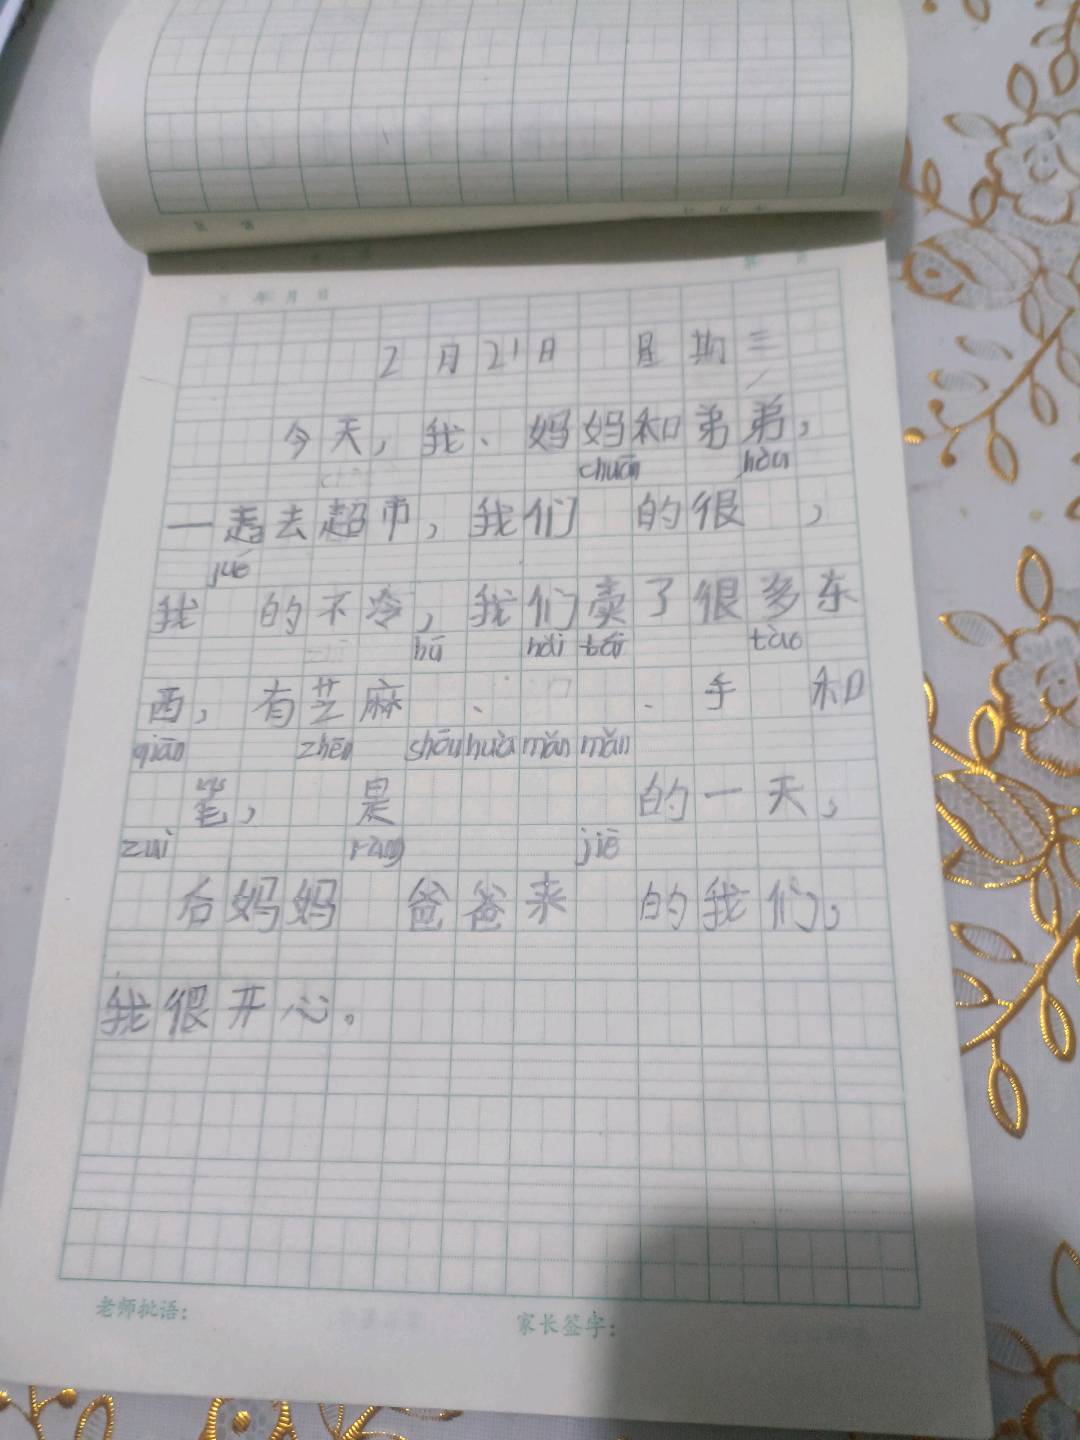 年 月 日
2月21日 星期三
今天，我、妈妈和弟弟，
chuān hòu
一起去超市，我们 的很 ，
jué
我 的不冷，我们卖了很多东
hú hái tào
西，有芝麻 、 、手 和
qiān zhēn shōu huò mǎn mǎn
笔， 是 的一天，
zuì ràng jiē
后妈妈 爸爸来 的我们，
我很开心。
老师批语： 家长签字：